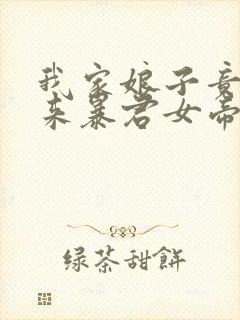 我家娘子竟
来暴君女帝
绿茶甜餅